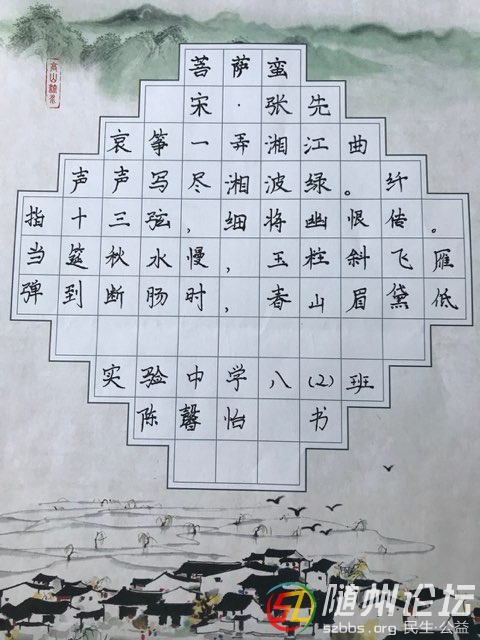 菩萨蛮
宋·张先
哀筝一弄湘江曲
声声写尽湘波绿。纤
指十三弦,细将幽恨传。
当筵秋水慢,玉柱斜飞雁
弹到断肠时,春山眉黛低
实验中学八(2)班
陈馨怡 书
随州论坛
szbbs.org 民生·公益